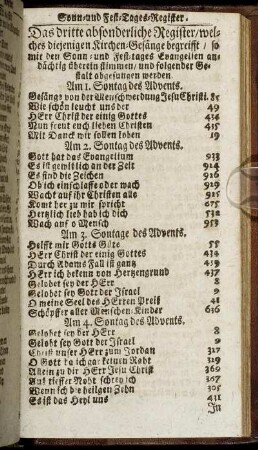 Sonn- und Fest-Tages-Register.
Das dritte absonderliche Register/ wel-
ches diejenigen Kirchen-Gesänge begreifft/ so
mit den Sonn- und Festtages Evangelien an-
dächtig überein stimmen/ und folgender Ge-
stalt abgesungen werden
Am 1. Sontag des Advents.
Gesänge von der Menschwerdung Jesu Christi. &c
Wie schön leucht uns der 49
HErr Christ der einig Gottes 434
Nun freut euch lieben Christen 435
Mit Danck wir sollen loben 19
Am 2. Sontag des Advents.
Gott hat das Evangelium 933
Es ist gewißlich an der Zeit 914
Es sind die Zeichen 916
Ob ich einschlaffe oder wach 929
Wacht auf ihr Christen alle 915
Komt her zu mir spricht 675
Hertzlich lieb hab ich dich 532
Wach auf o Mensch 953
Am 3. Sontage des Advents.
Helfft mir Gotts Güte 55
HErr Christ der einig Gottes 434
Durch Adams Fall ist gantz 459
HErr ich bekenn von Hertzengrund 437
Gelobet sey der HErr 8
Gelobet sey Gott der Israel 9
O meine Seel des HErren Preiß 41
Schöpffer aller Menschen-Kinder 636
Am 4. Sontag des Advents.
Gelobet sey der HErr 8
Gelobt sey Gott der Israel 9
Christ unser HErr zum Jordan 317
O Gott da ich gar keinen Raht 329
Allein zu dir HErr Jesu Christ 369
Aus tieffer Noht schrey ich 367
Wenn ich die heilgen Zehn 305
Es ist das Heyl uns 431
In